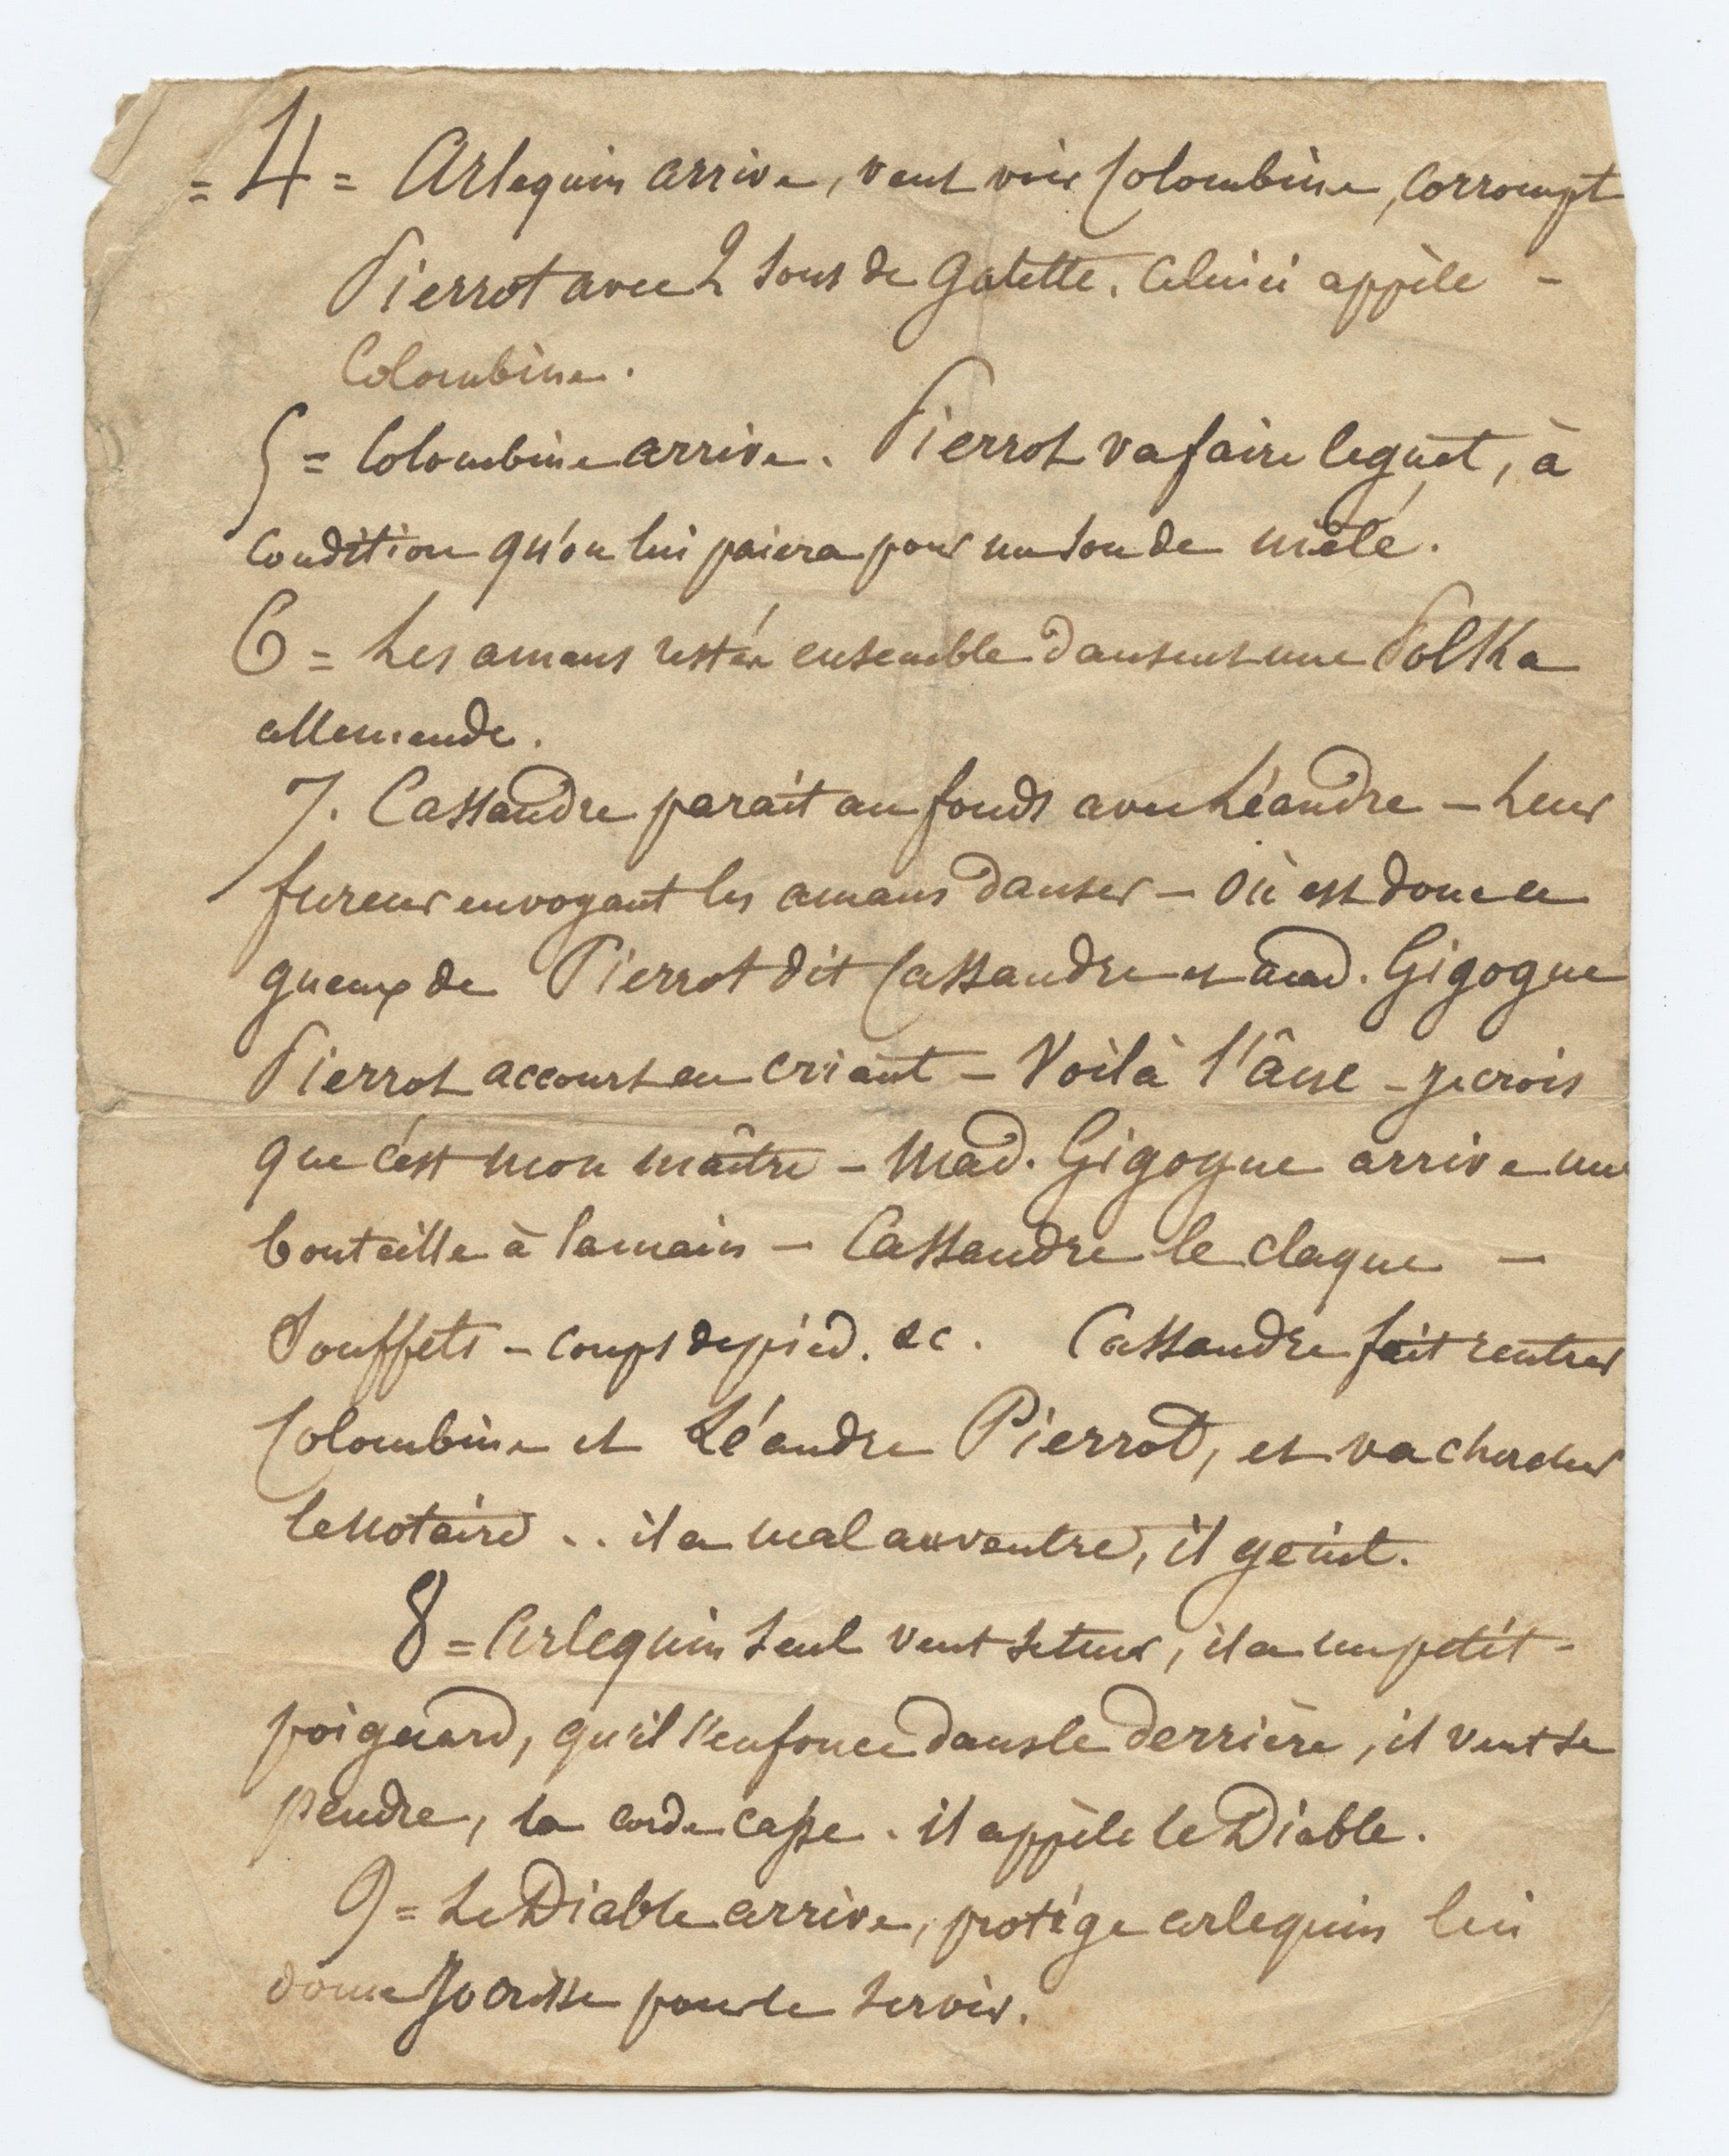 = 4 = Arlequin arrive, veut voir Colombine, corrompt
Pierrot avec 2 sous de galette. Celui ci appèle -
Colombine.
5 = Colombine arrive. Pierrot va faire le guet, à
condition qu'on lui paiera pour un sou de mêlé.
6 = Les amans restés ensemble dansent une Polka
allemande.
7. Cassandre parait au fonds avec Léandre - Leur
fureur en voyant les amans danser - Où est donc ce
gueux de Pierrot dit Cassandre et mad. Gigogne
Pierrot accourt en criant - Voilà l'âne - je crois
que c'est mon maître - Mad. Gigogne arrive une
bouteille à la main - Cassandre le claque -
Soufflets - coups de pied. &c. Cassandre fait rentrer
Colombine et Léandre Pierrot, et va chercher
le notaire .. il a mal au ventre, il geint.
8 = Arlequin seul veut se tuer, il a un petit -
poignard, qu'il s'enfonce dans le derrière, il veut se
pendre, la corde casse. il appèle le Diable.
9 = Le Diable arrive, protége arlequin lui
donne Jocrisse pour le servir.